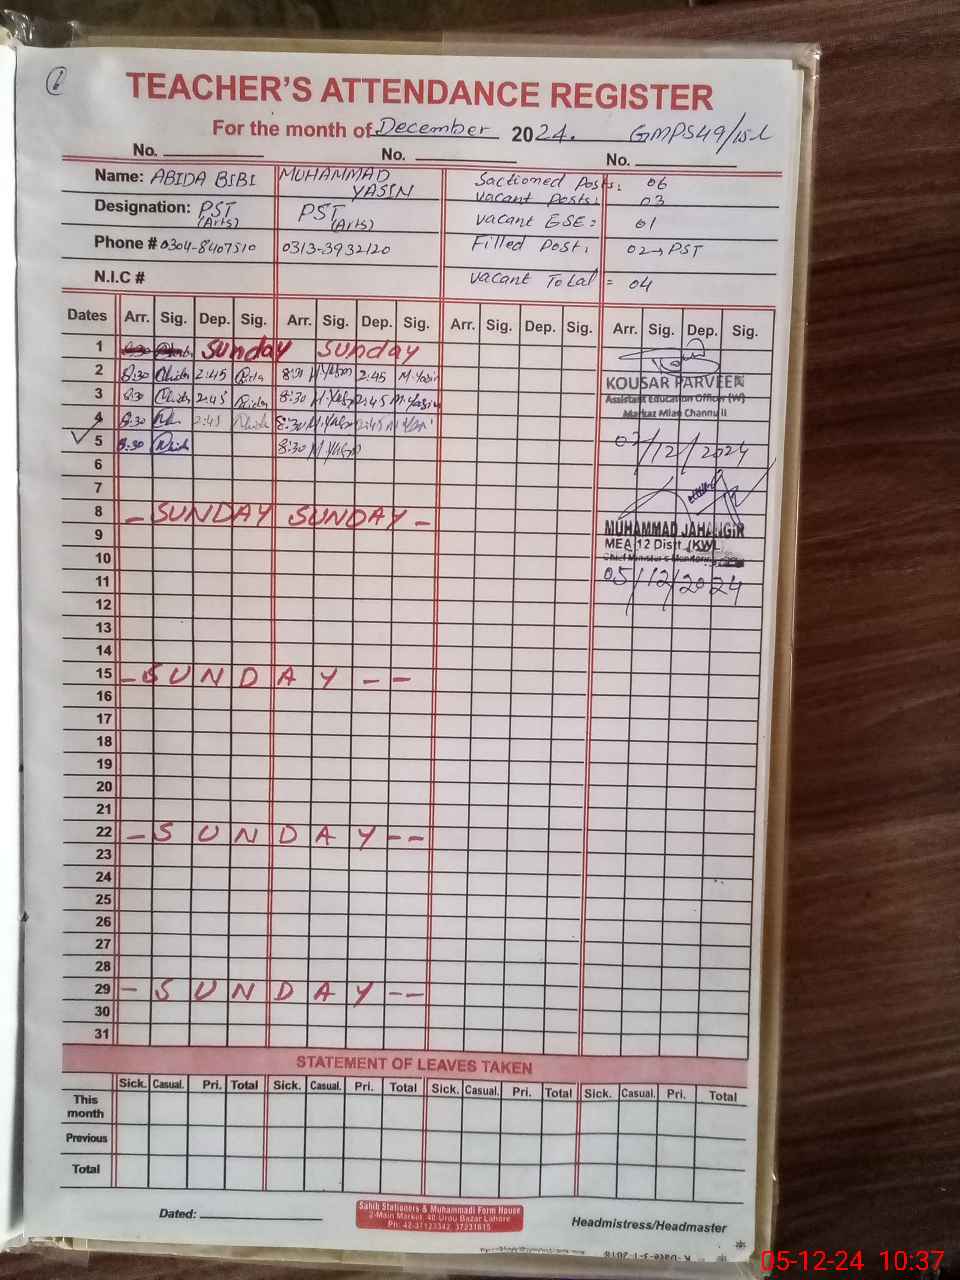 6
TEACHER'S ATTENDANCE REGISTER
For the month of December 2024. GMPS49/15-L
No. No. No.
Name: ABIDA BIBI MUHAMMAD YASIN Sactioned Posts: 06
vacant Posts: 03
Designation: PST (Arts) PST (Arts) vacant ESE = 01
Phone # 0304-8407510 0313-3932120 Filled Post: 02→PST
N.I.C # vacant Total = 04
Dates Arr. Sig. Dep. Sig. Arr. Sig. Dep. Sig. Arr. Sig. Dep. Sig. Arr. Sig. Dep. Sig.
1 8:30 Sunday Sunday
2 8:30 2:45 8:30 M.Yasin 2:45 M.Yasin
KOUSAR PARVEEN
3 8:30 2:45 8:30 M.Yasin 2:45 M.Yasin
Assistant Education Officer (W)
Markaz Mian Channu II
4 8:30 2:45 8:30 M.Yasin 2:45 M.Yasin
5 8:30 8:30 M.Yasin
/12/2024
6
7
8 - SUNDAY SUNDAY -
MUHAMMAD JAHANGIR
9
MEA 12 Distt (KWL)
10
11
05/12/2024
12
13
14
15 - SUNDAY - -
16
17
18
19
20
21
22 - SUNDAY - -
23
24
25
26
27
28
29 - SUNDAY - -
30
31
STATEMENT OF LEAVES TAKEN
Sick. Casual. Pri. Total Sick. Casual. Pri. Total Sick. Casual. Pri. Total Sick. Casual. Pri. Total
This month
Previous
Total
Dated:
Sahib Stationers & Muhammadi Form House
2-Main Market, 40 Urdu Bazar Lahore
Ph: 42-37123342, 37231615
Headmistress/Headmaster
05-12-24 10:37